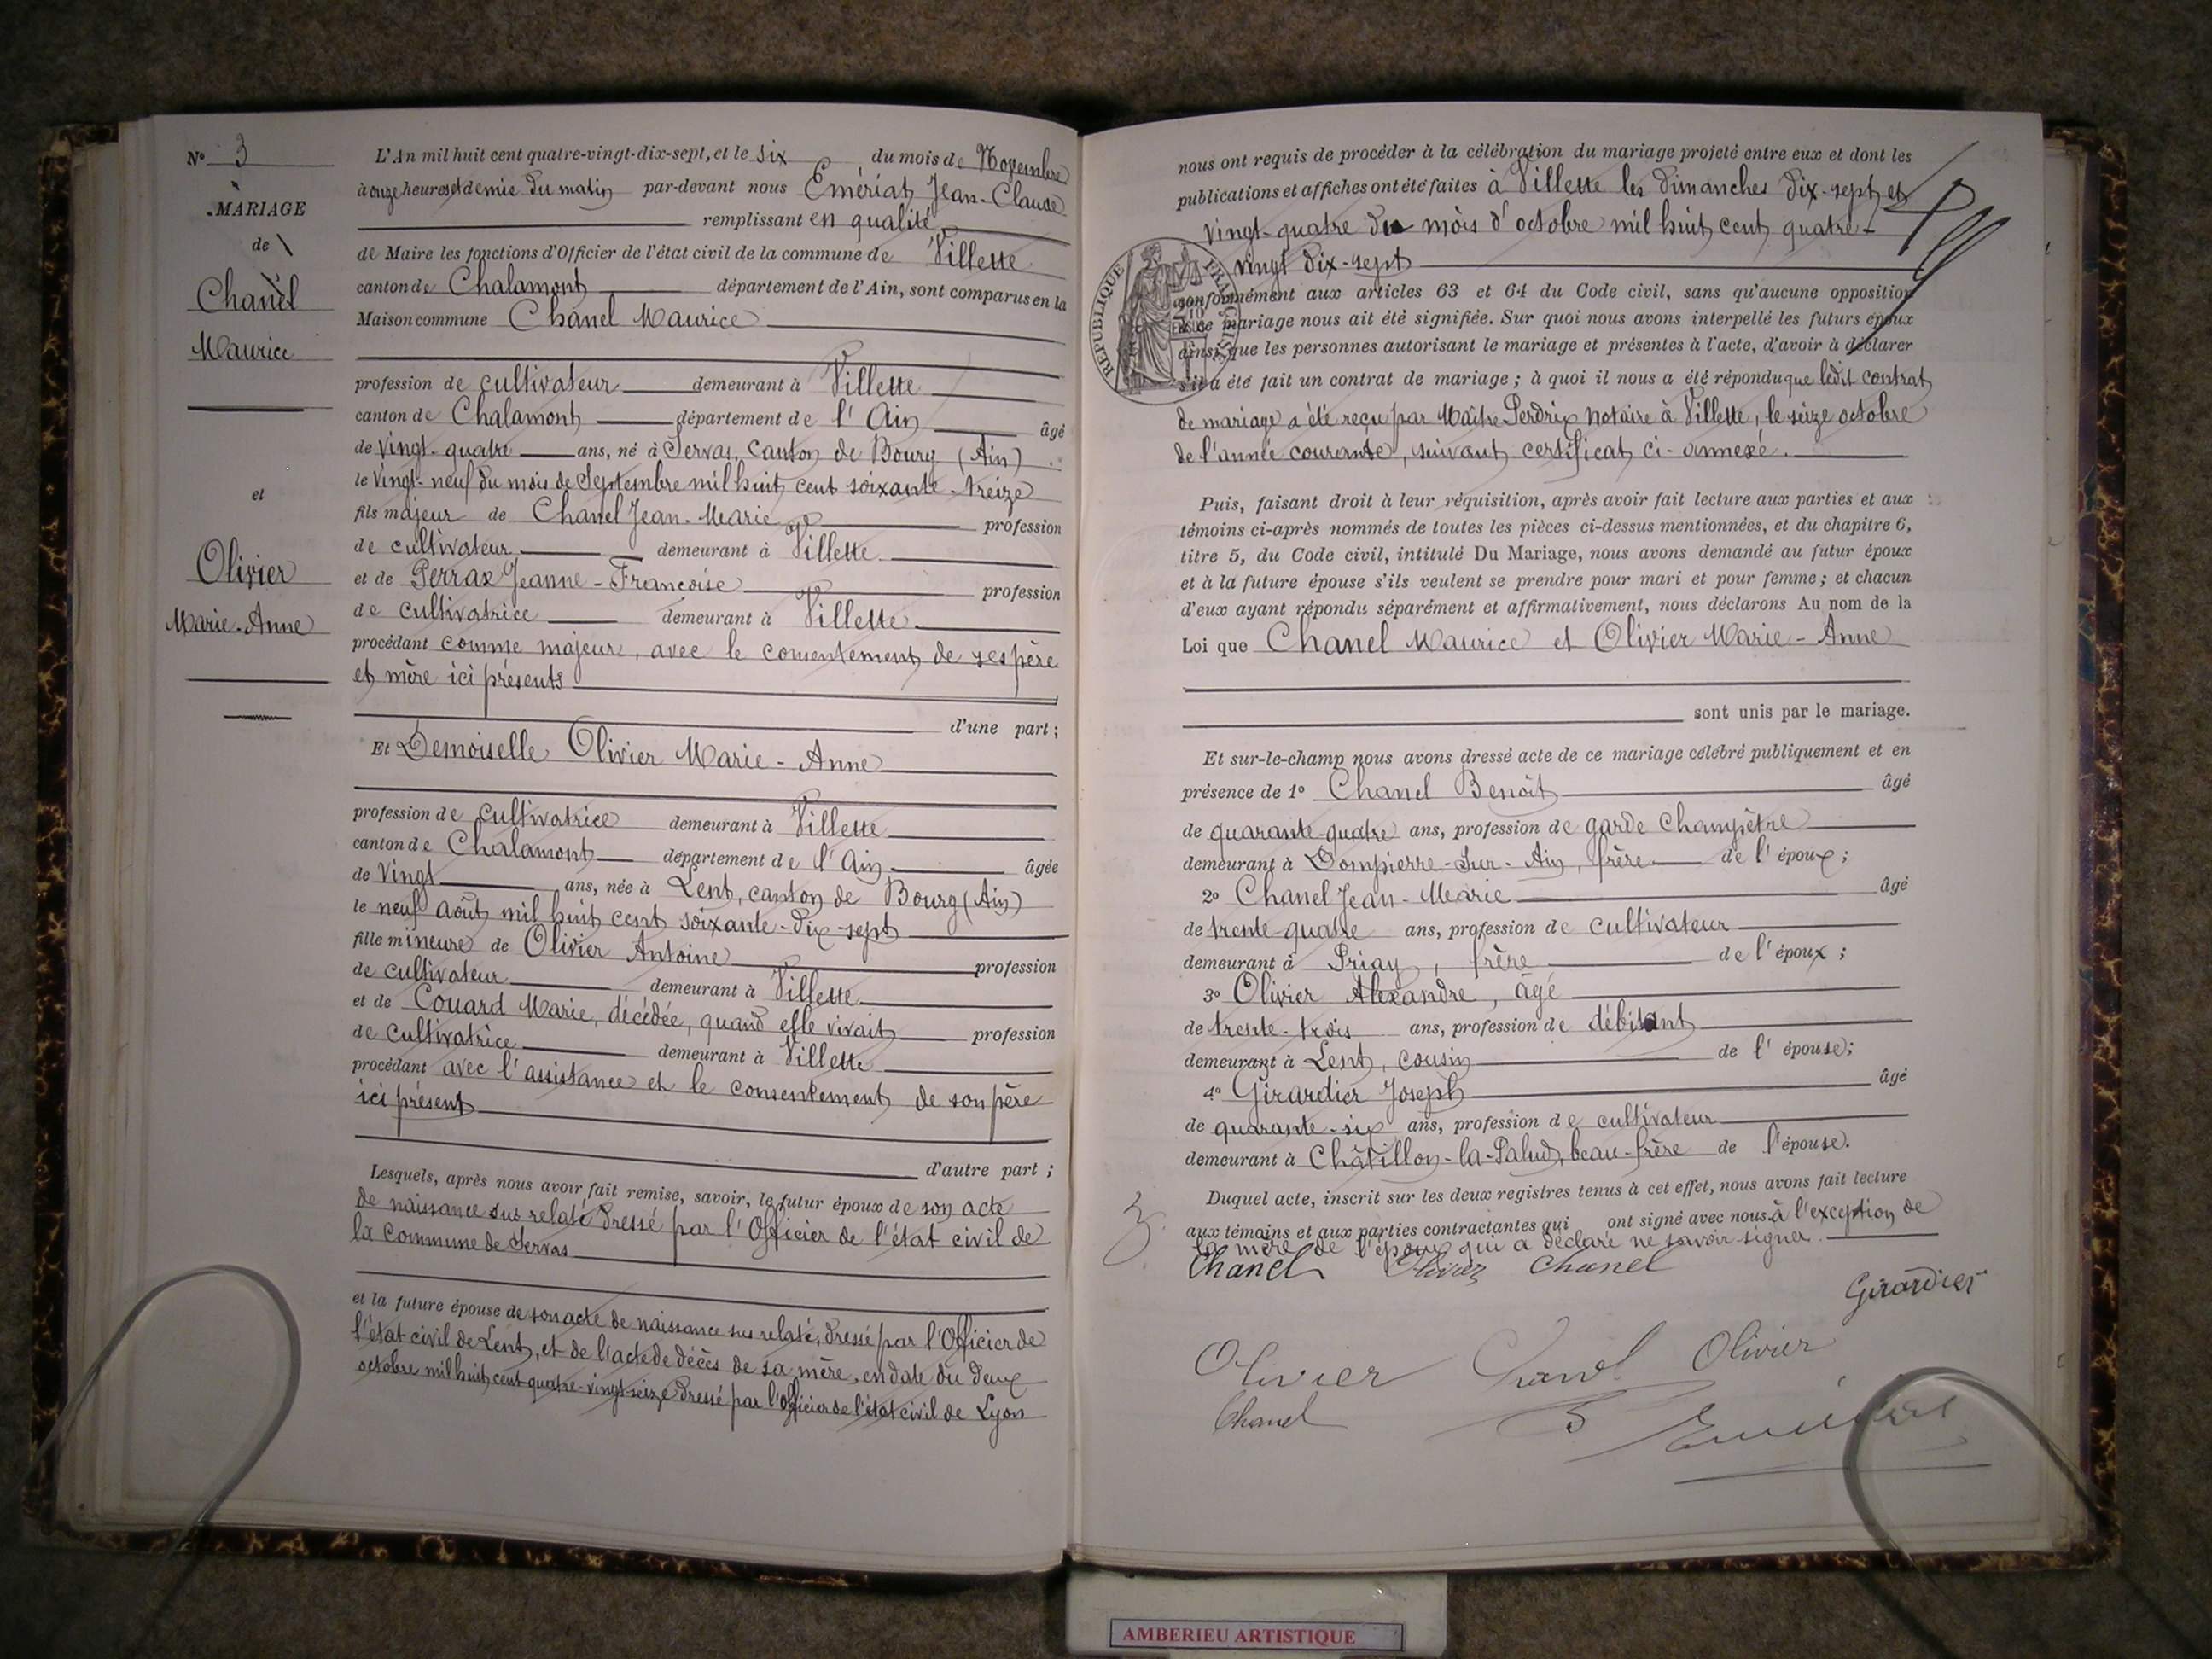 N° 3
MARIAGE
de
Chanel
Maurice
et
Olivier
Marie-Anne
L'An mil huit cent quatre-vingt-dix-sept, et le six du mois de Novembre
à onze heures et demie du matin par-devant nous Emériat Jean-Claude
remplissant en qualité
de Maire les fonctions d'Officier de l'état civil de la commune de Villette
canton de Chalamont département de l'Ain, sont comparus en la
Maison commune Chanel Maurice
profession de cultivateur demeurant à Villette
canton de Chalamont département de l'Ain âgé
de vingt-quatre ans, né à Servas, canton de Bourg (Ain)
le vingt-neuf du mois de Septembre mil huit cent soixante-treize
fils majeur de Chanel Jean-Marie profession
de cultivateur demeurant à Villette
et de Perrax Jeanne-Françoise profession
de cultivatrice demeurant à Villette
procédant comme majeur, avec le consentement de ses père
et mère ici présents
d'une part ;
Et Demoiselle Olivier Marie-Anne
profession de cultivatrice demeurant à Villette
canton de Chalamont département de l'Ain âgée
de vingt ans, née à Lent, canton de Bourg (Ain)
le neuf août mil huit cent soixante-dix-sept
fille mineure de Olivier Antoine profession
de cultivateur demeurant à Villette
et de Couard Marie, décédée, quand elle vivait profession
de cultivatrice demeurant à Villette
procédant avec l'assistance et le consentement de son père
ici présent
d'autre part ;
Lesquels, après nous avoir fait remise, savoir, le futur époux de son acte
de naissance sus relaté dressé par l'Officier de l'état civil de
la commune de Servas
et la future épouse de son acte de naissance sus relaté, dressé par l'Officier de
l'état civil de Lent, et de l'acte de décès de sa mère, en date du deux
octobre mil huit cent quatre-vingt-seize dressé par l'officier de l'état civil de Lyon
nous ont requis de procéder à la célébration du mariage projeté entre eux et dont les
publications et affiches ont été faites à Villette les dimanches dix-sept et
vingt-quatre du mois d'octobre mil huit cent quatre-
vingt dix-sept
REPUBLIQUE FRANÇAISE
conformément aux articles 63 et 64 du Code civil, sans qu'aucune opposition
à ce mariage nous ait été signifiée. Sur quoi nous avons interpellé les futurs époux
ainsi que les personnes autorisant le mariage et présentes à l'acte, d'avoir à déclarer
s'il a été fait un contrat de mariage ; à quoi il nous a été répondu que ledit contrat
de mariage a été reçu par Maître Perdrix notaire à Villette, le seize octobre
de l'année courante, suivant certificat ci-annexé.
Puis, faisant droit à leur réquisition, après avoir fait lecture aux parties et aux
témoins ci-après nommés de toutes les pièces ci-dessus mentionnées, et du chapitre 6,
titre 5, du Code civil, intitulé Du Mariage, nous avons demandé au futur époux
et à la future épouse s'ils veulent se prendre pour mari et pour femme ; et chacun
d'eux ayant répondu séparément et affirmativement, nous déclarons Au nom de la
Loi que Chanel Maurice et Olivier Marie-Anne
sont unis par le mariage.
Et sur-le-champ nous avons dressé acte de ce mariage célébré publiquement et en
présence de 1° Chanel Benoît âgé
de quarante-quatre ans, profession de garde champêtre
demeurant à Dompierre-sur-Ain, frère de l'époux ;
2° Chanel Jean-Marie âgé
de trente-quatre ans, profession de cultivateur
demeurant à Priay, frère de l'époux ;
3° Olivier Alexandre, âgé
de trente-trois ans, profession de débitant
demeurant à Lent, cousin de l'épouse ;
4° Girardier Joseph âgé
de quarante-six ans, profession de cultivateur
demeurant à Châtillon-la-Palud, beau-frère de l'épouse.
Duquel acte, inscrit sur les deux registres tenus à cet effet, nous avons fait lecture
aux témoins et aux parties contractantes qui ont signé avec nous à l'exception de
la mère de l'époux qui a déclaré ne savoir signer.
Chanel Olivier Chanel
Girardier
Olivier Olivier
Chanel Emériat
AMBERIEU ARTISTIQUE